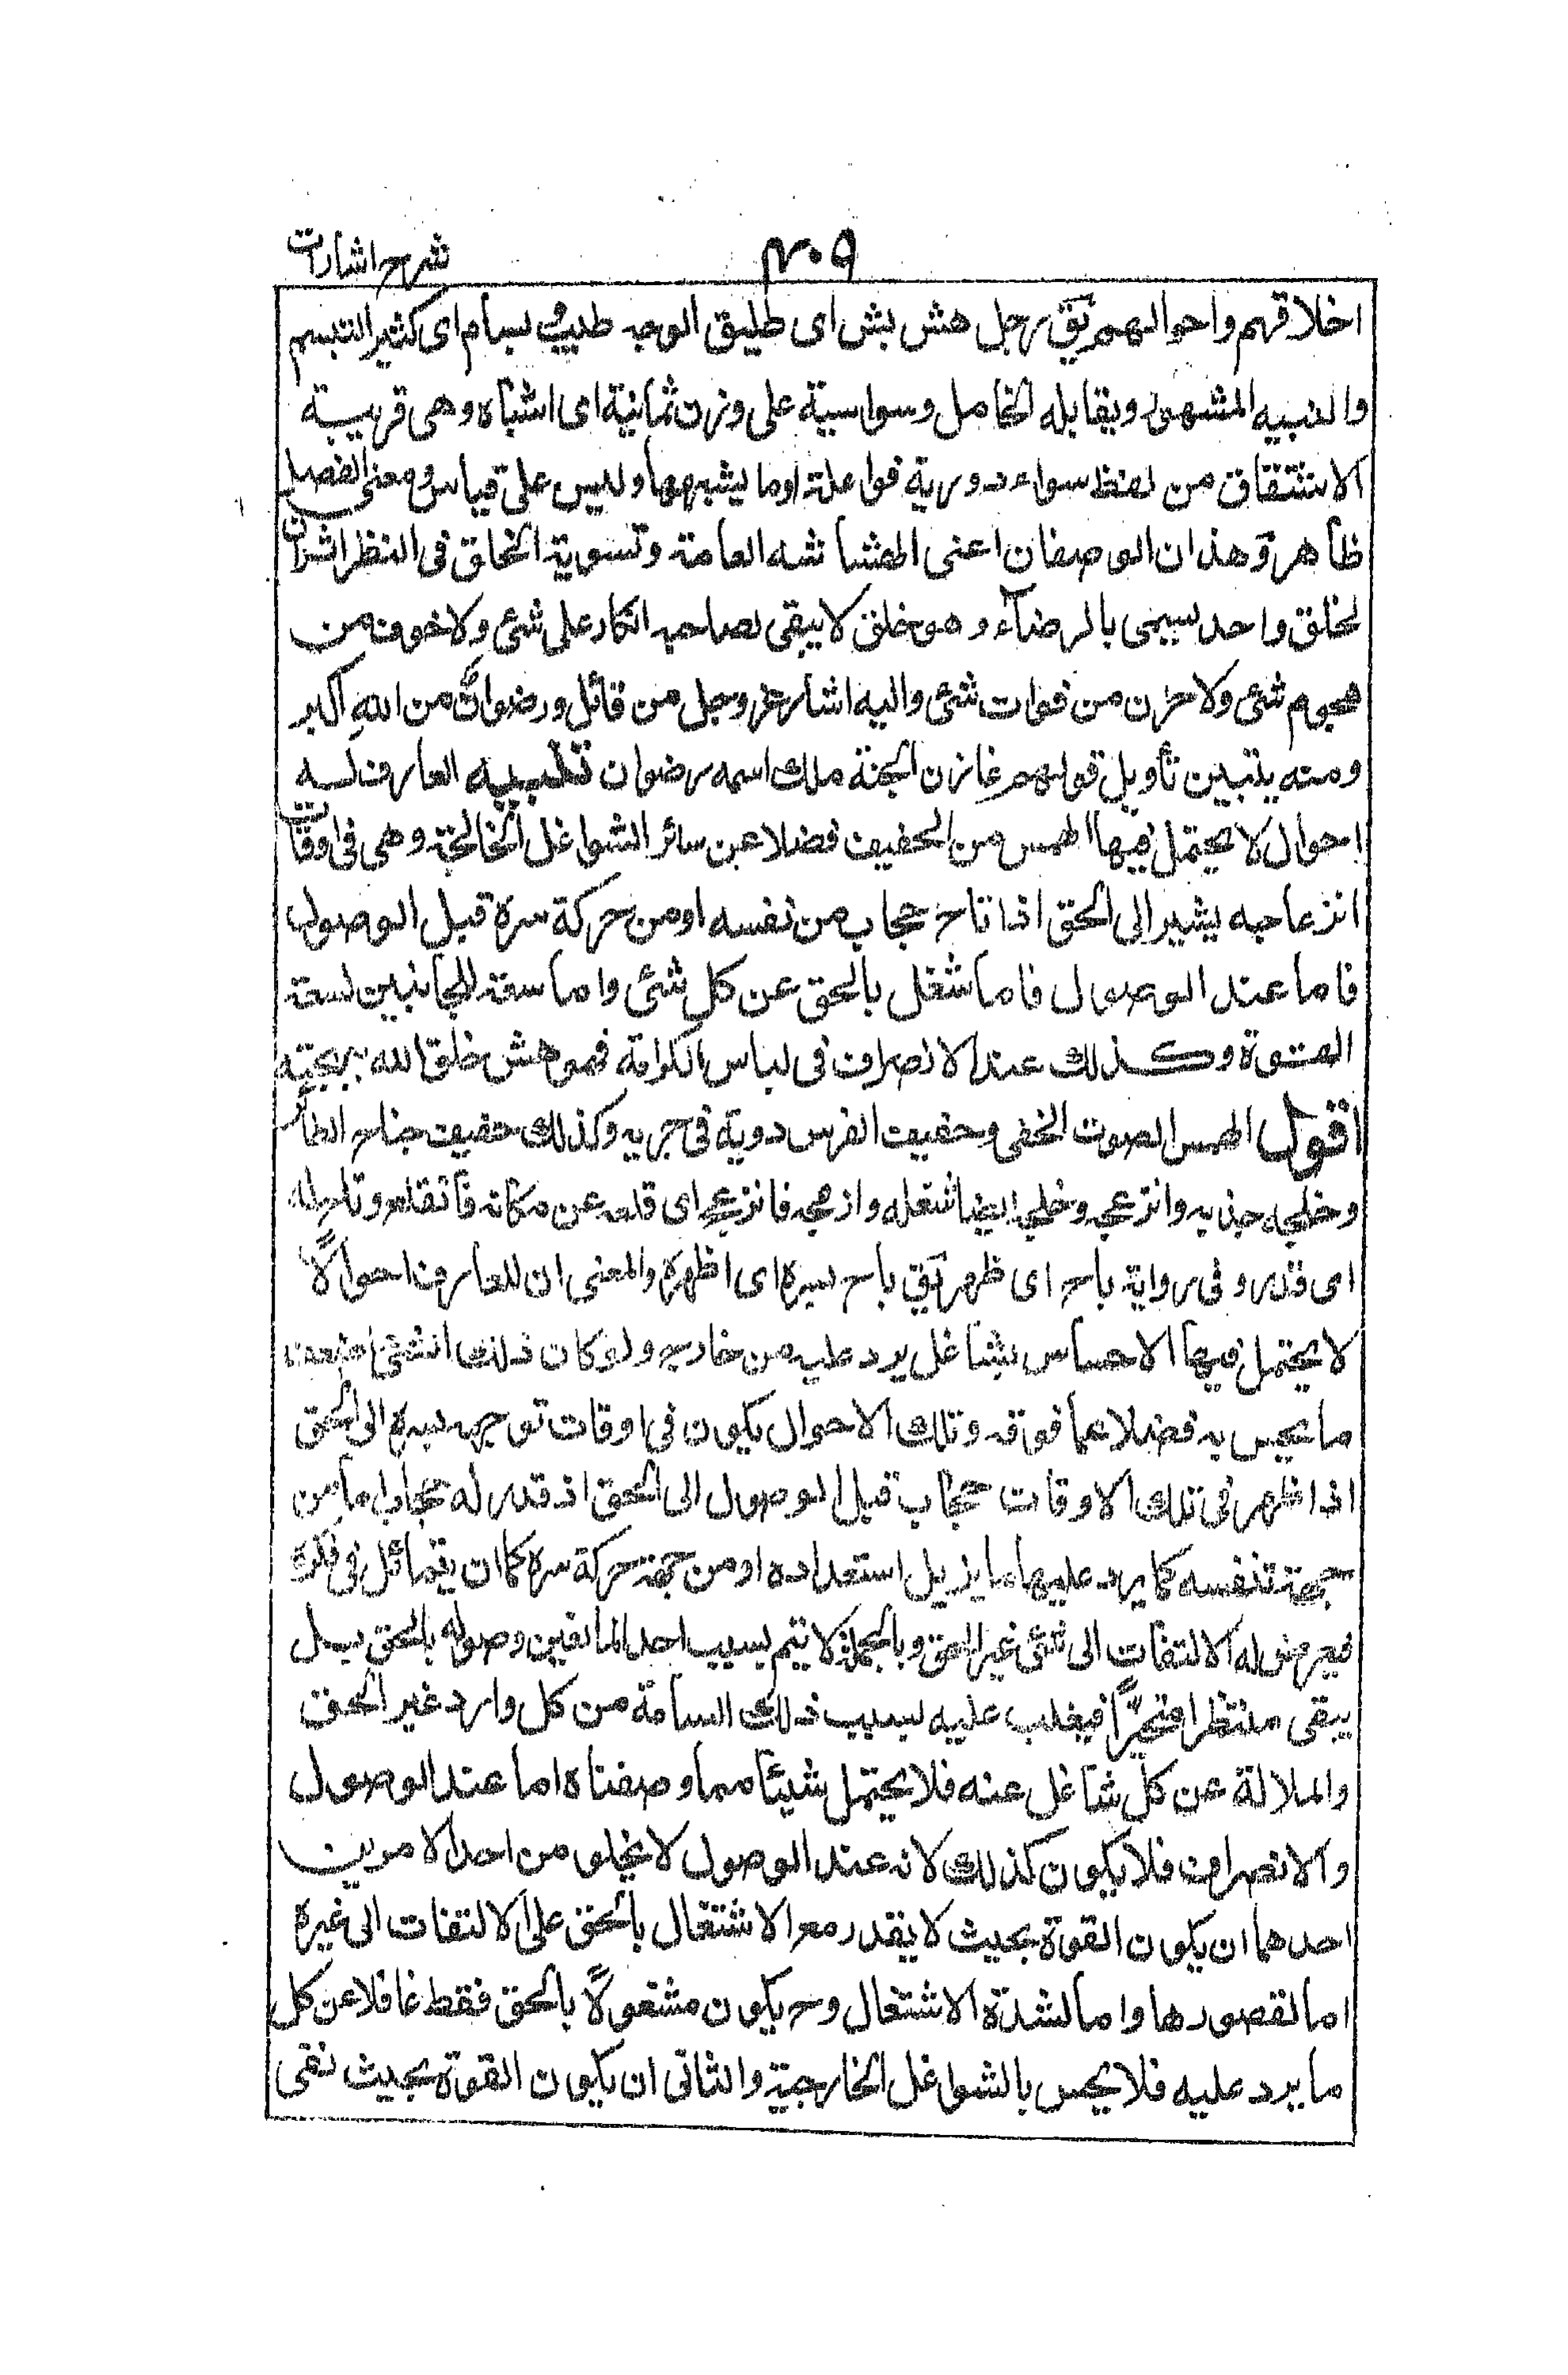 شرح اشارات
٣٠٩
اخلاقهم واحوالهم يق رجل هش بش اى طليق الوجه طيب بسام اى كثير التبسم
والنبيه المشهور ويقابله الخامل وسواسية على وزن ثمانية اى اشباه وهى قريبة
الاشتقاق من لفظ سواء ووزنه فواعلة اوما يشبهها وليس على قياس ومعنى الفصل
ظاهر وهذان الوصفان اعنى الهشاشة العامة وتسوية الخلق فى النظر اثران
لخلق واحد يسمى بالرضاء وهو خلق لا يبقى لصاحبه انكار على شئ ولا خوف من
هجوم شئ ولا حزن من فوات شئ واليه اشار عز وجل من قائل ورضوان من الله اكبر
ومنه يتبين تأويل قولهم خازن الجنة ملك اسمه رضوان تنبيه العارف له
احوال لا يحتمل فيها الهمس من الحفيف فضلا عن سائر الشواغل الخالجة وهى فى اوقات
انزعاجه بسره الى الحق اذا تاح حجاب من نفسه او من حركة سره قبل الوصول
فاما عند الوصول فاما شغل بالحق عن كل شئ واما سعة للجانبين لسعة
القوة وكذلك عند الانصراف فى لباس الكرامة فهو هش خلق الله ببهجته
اقول الهمس الصوت الخفى وحفيف الفرس دويه فى جريه وكذلك حفيف جناح الطائر
وخلجه جذبه وانتزعه وخلجه ايضا شغله وازعجه فانزعج اى قلعه عن مكانه فانقلع وتاح له
اى قدر وفى رواية باح اى ظهر يق باح بسره اى اظهره والمعنى ان للعارف احوالًا
لا يحتمل فيها الاحساس بشاغل يرد عليه من خارج ولو كان ذلك الشئ اضعف
ما يحس به فضلا عما فوقه وتلك الاحوال يكون فى اوقات توجهه بسره الى الحق
اذا ظهر فى تلك الاوقات حجاب قبل الوصول الى الحق اذ قدر له حجاب اما من
جهة نفسه كما يرد عليها ما يزيل استعداده او من جهة حركة سره كما ان يتمائل فى فكره
فيعرض له الالتفات الى شئ غير الحق وبالجملة لا يتم بسبب احد المانعين وصوله بالحق بل
يبقى منتظرا متحيرًا فيغلب عليه بسبب ذلك السامة من كل وارد غير الحق
والملالة عن كل شاغل عنه فلا يحتمل شيئا مما وصفناه اما عند الوصول
والانصراف فلا يكون كذلك لانه عند الوصول لا يخلو من احد الامرين
احدهما ان يكون القوة بحيث لا يقدر مع الاشتغال بالحق على الالتفات الى غيره
اما لقصورها واما لشدة الاشتغال وح يكون مشغولًا بالحق فقط غافلا عن كل
ما يرد عليه فلا يحس بالشواغل الخارجية والثانى ان يكون القوة بحيث تفى